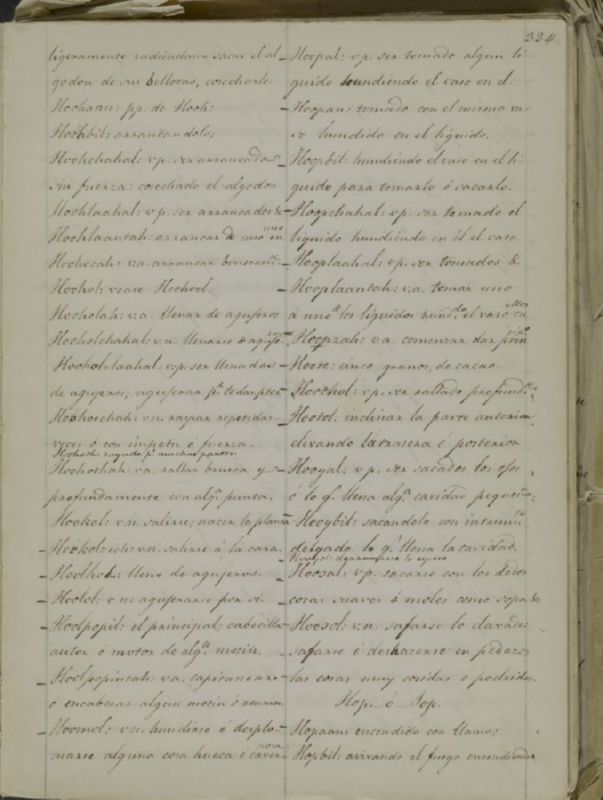 334
ligeramente radicadas = sacar el al-
godon de su bellotas, cosecharle
Hoohaan: pp. de Hooh:
Hoohbit: arrancandolos
Hoohchahal: v.p. ser arrancados
sin fuerza: cosechado el algodon
Hoohlaahal: v.p. ser arrancados &
Hoohlaantah: arrancar de uno en uno
Hoohzah: v.a. arrancar
Hoohol: vease Hochool.
Hooholah: v.a. llenar de agujeros
Hooholchahal: v.n. llenarse
Hoohol-laahal: v.p. ser llenados
de agujeros, agujerear pr. todas ptes
Hoohoochah: v.n. raspar repetidas
veces ó con impetu ó fuerza.
Hoohoth: rayado pr. muchas partes
Hoohothah: v.a. rallar brusca y
profundamente con algª punta.
Hookol: v.n. salirse; nacer la planta
Hookolzich: v.n. salirse á la cara.
Hoolhol: lleno de agujeros.
Hoolol: v.n. agujerarse por si
Hoolpopil: el principal; cabecilla
autor ó motor de algn. motin.
Hoolpopintah: v.a. capitanear
ó encabezar algun motin ó reunion
Hoomol: v.n. hundirse ó desplo-
marse alguna cosa hueca ó
Hoopal: v.p. ser tomado algun li-
quido hundiendo el vaso en el
Hoopan: tomado con el mismo va-
so hundido en el líquido.
Hoopbit: hundiendo el vaso en el li-
quido para tomarlo ó sacarlo.
Hoopchahal: v.p. ser tomado el
liquido hundiendo en él el vaso
Hooplaahal: v.p. ser tomados &
Hooplaantah: v.a. tomar uno
á uno los liquidos hunddo. el vaso en ellos
Hoopzah: v.a. comenzar dar prin
cipo
Hoote: cinco granos, de cacao.
Hoothol: v.p. ser rallado profundte.
Hootol: inclinar la parte anterior
elevando la trasera ó posterior
Hooyal: v.p. ser sacados los ojos
ó lo q. llena algª cavidad pequeña
Hooybit: sacandolo con instrumto
delgado lo q. llena la cavidad.
Hooyol: derramarse lo espeso
Hoozal: v.p. sacarse con los dedos
cosas suaves ó moles como sopa &
Hoozol: v.n. safarse lo clavado:
safarse ó deshacerse en pedazos
las cosas muy cosidas ó podridas.
Hop. ó Jop.
Hopaan: encendido con llama:
Hopbit: avivando el fuego encendiendo